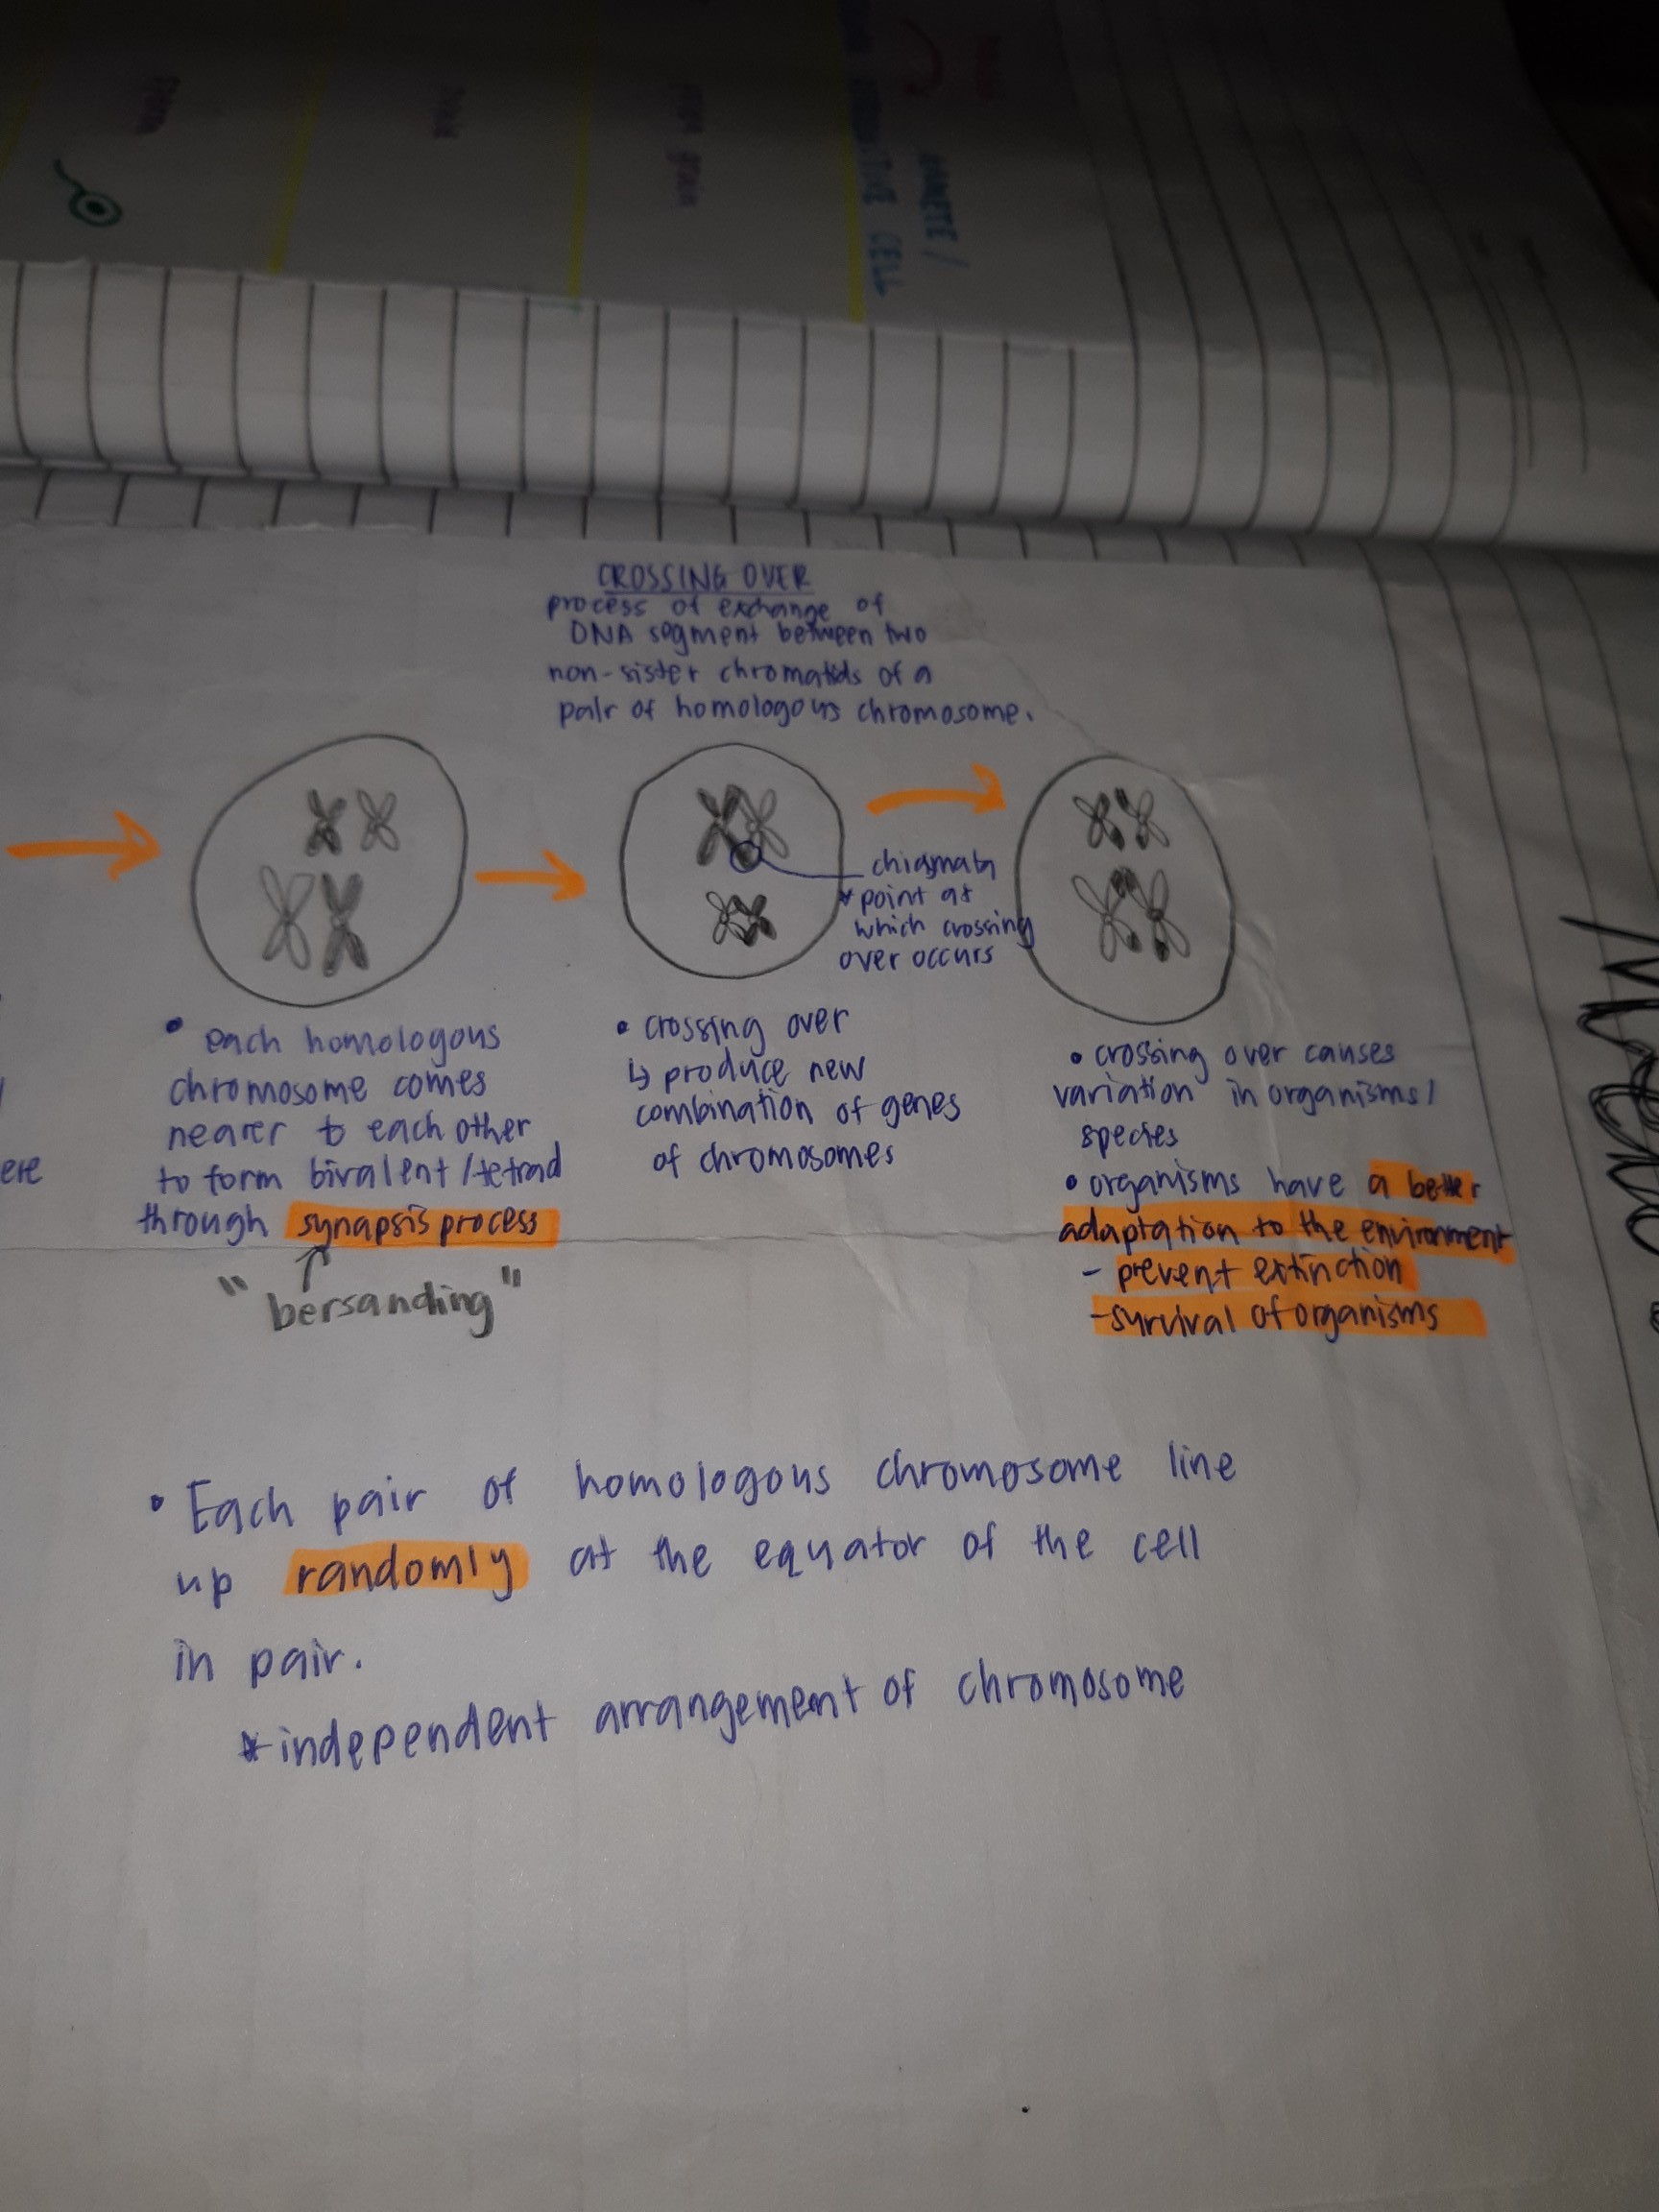 GAMETE /
CELL
grain
CROSSING OVER
process of exchange of
DNA segment between two
non-sister chromatids of a
pair of homologous chromosome.
chiasmata
* point at
which crossing
over occurs
ere
• each homologous
chromosome comes
nearer to each other
to form bivalent/tetrad
through synapsis process
"bersanding"
• crossing over
↳ produce new
combination of genes
of chromosomes
• crossing over causes
variation in organisms/
species
• organisms have a better
adaptation to the environment
- prevent extinction
- survival of organisms
• Each pair of homologous chromosome line
up randomly at the equator of the cell
in pair.
* independent arrangement of chromosome